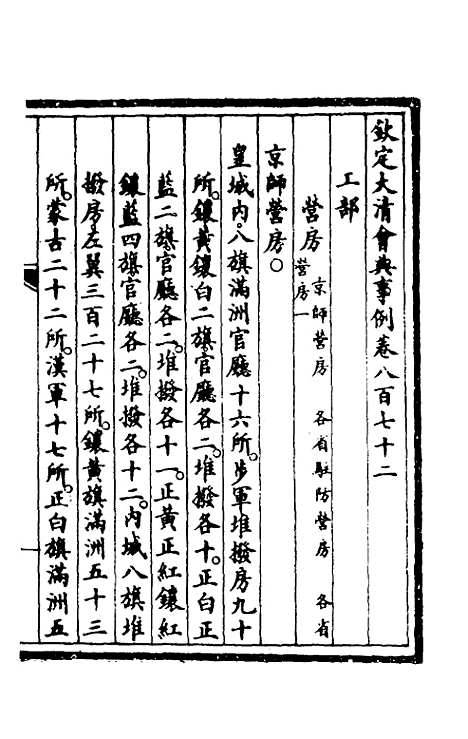 欽定大清會典事例卷八百七十二
工部
營房 京師營房 各省駐防營房 各省
營房一
京師營房○
皇城內八旗滿洲官廳十六所。步軍堆撥房九十
所。鑲黃鑲白二旗官廳各二。堆撥各十。正白正
藍二旗官廳各二。堆撥各十一。正黃正紅鑲紅
鑲藍四旗官廳各二。堆撥各十二。內城八旗堆
撥房。左翼三百二十七所。鑲黃旗滿洲五十三
所。蒙古二十二所。漢軍十七所。正白旗滿洲五